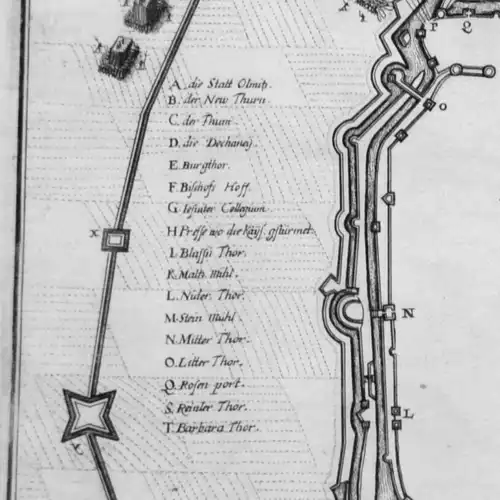 P Q
O
A. die Statt Olmitz.
B. der New Thurn.
C. der Thum
D. die Dechaney.
E. Burgthor.
F. Bischofs Hoff.
G. Iesuiter Collegium.
H Presse wo die Kays. gstürmet.
I. Blassii Thor.
K. Malh Mihl.
L. Nider Thor.
M. Stein Muhl.
N. Mitter Thor.
O. Litter Thor.
Q. Rosen port.
S. Reinler Thor.
T. Barbara Thor.
X
N
L